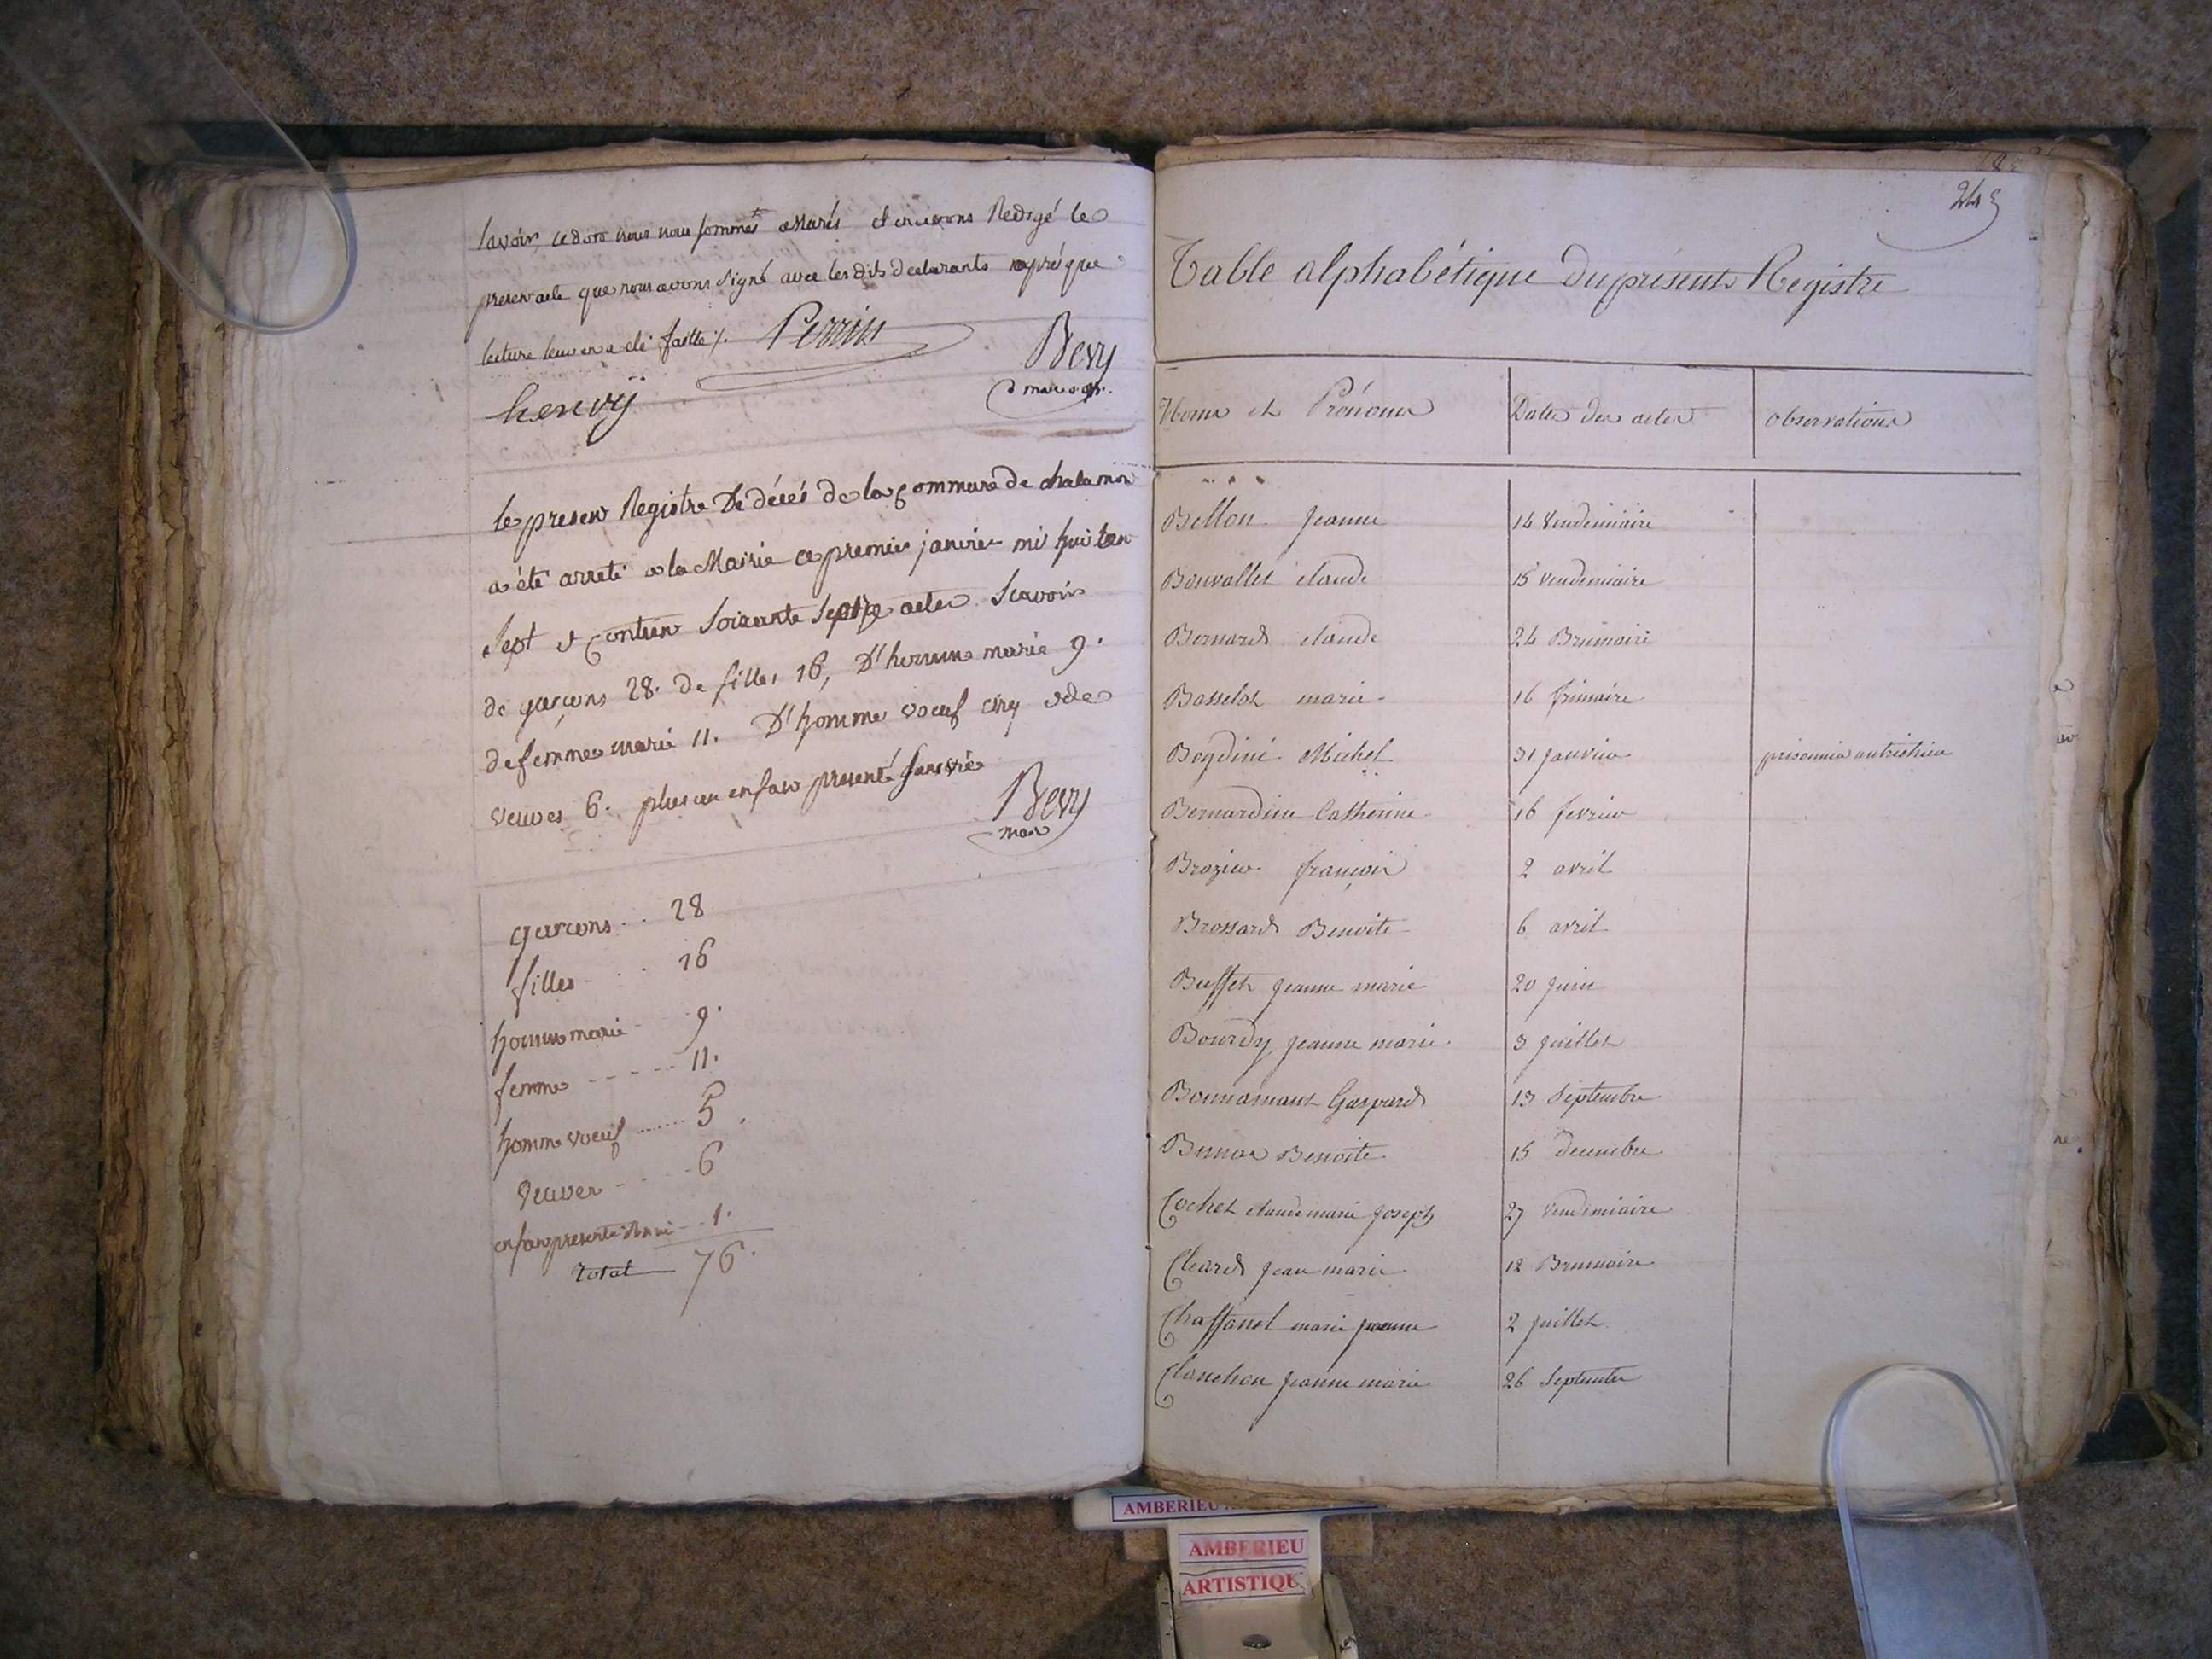 savoir, ce dont nous nous sommes assurés et en avons Redigé le
present acte que nous avons signé avec les dits declarants apres que
lecture leur en a été faitte ./. Perrin
Bevy
maire
henry
le present Registre De décès de la commune de chalamon
a été arreté a la Mairie ce premier janvier mil huit cen
Sept et contien soixante Seize actes Scavoir
de garçons 28. de filles 16, D'homme marié 9.
de femmes marié 11. D'homme voeuf cinq et de
veuves 6. plus un enfant presenté sans vie
Bevy
maire
garcons 28
filles 16
homme marie 9.
femme 11.
homme voeuf 5.
veuves 6
enfan presenté sans vie 1.
total 76.
243
Table alphabétique du présent Registre
Noms et Prénoms Dates des actes observations
Bellon Jeanne 14 Vendemiaire
Bouvallet claude 15 vendemiaire
Bernard claude 24 Brumaire
Basselot marie 16 frimaire
Bogdini Michel 31 janvier prisonnier autrichien
Bernardine Catherine 16 fevrier
Brazier françois 2 avril
Brossard Benoite 6 avril
Buffet jeanne marie 20 juin
Bourdy jeanne marie 3 juillet
Bonnamant Gaspard 13 Septembre
Benoite 15 decembre
Cochet claude marie joseph 27 vendemiaire
Cleard jean marie 12 Brumaire
Chaffanel marie jeanne 2 juillet
Clanchon jeanne marie 26 Septembre
AMBERIEU
AMBERIEU
ARTISTIQUE